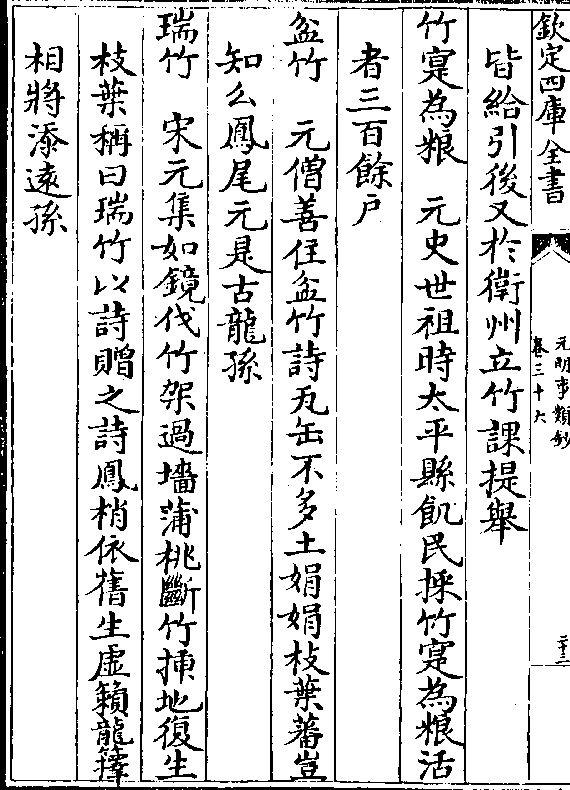 欽定四庫全書
元明事類鈔
卷三十六
二十三
皆給引後又於衛州立竹課提舉
竹寔為粮　元史世祖時太平縣飢民採竹寔為粮活
者三百餘戶
盆竹　元僧善住盆竹詩瓦缶不多土娟娟枝葉蕃豈
知么鳳尾元是古龍孫
瑞竹　宋元集如鏡伐竹架過墻蒲桃斷竹挿地復生
枝葉稱曰瑞竹以詩贈之詩鳳梢依舊生虛籟龍籜
相將添遠孫